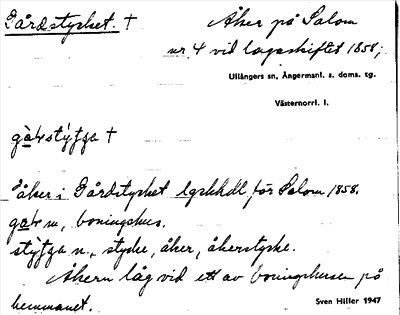 Gårdstycket. † Åker på Salom
nr 4 vid lagaskiftet 1858;
Ullångers sn, Ångermanl. s. doms. tg.
Västernorrl. l.
†
Åker i Gårdstycket lgskhdl. för Salom 1858.
m., boningshus.
n., stycke, åker, åkerstycke.
Åkern låg vid ett av boningshusen på
hemmanet.
Sven Hiller 1947